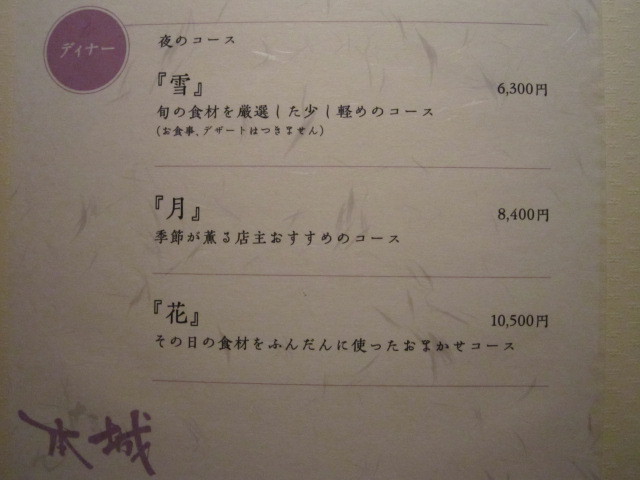 ディナー
夜のコース
『雪』 6,300円
旬の食材を厳選した少し軽めのコース
(お食事、デザートはつきません)
『月』 8,400円
季節が薫る店主おすすめのコース
『花』 10,500円
その日の食材をふんだんに使ったおまかせコース
本城